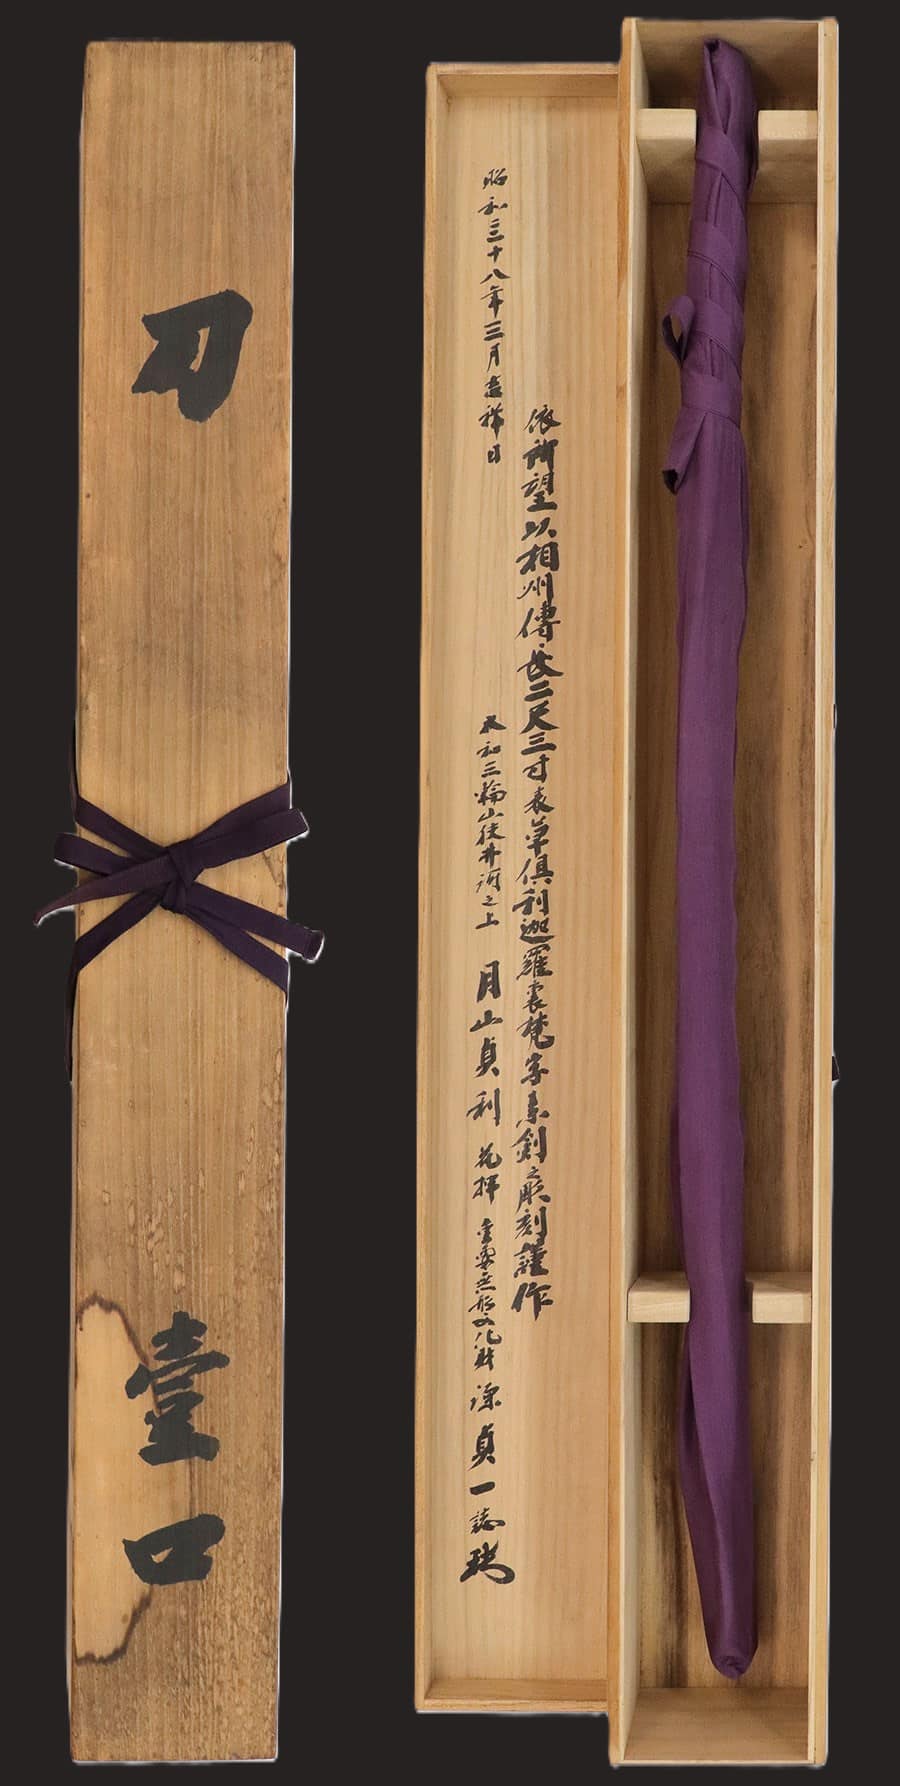 刀 壹口
依所望以相州傳長二尺三寸表草俱利迦羅裏梵字素劍之彫刻謹作
昭和三十八年三月吉祥日 大和三輪山狭井河之上 月山貞利 花押 重要無形文化財 源貞一誌